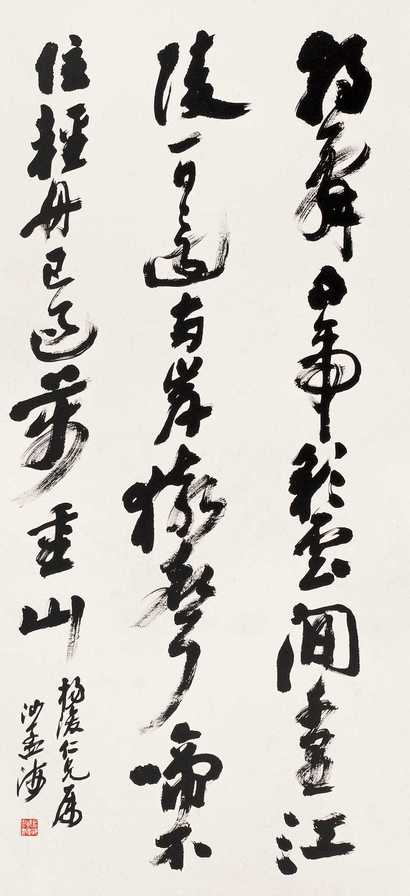 朝辭白帝彩雲間千里江
陵一日還兩岸猿聲啼不
住輕舟已過萬重山
楊陵仁兄屬
沙孟海